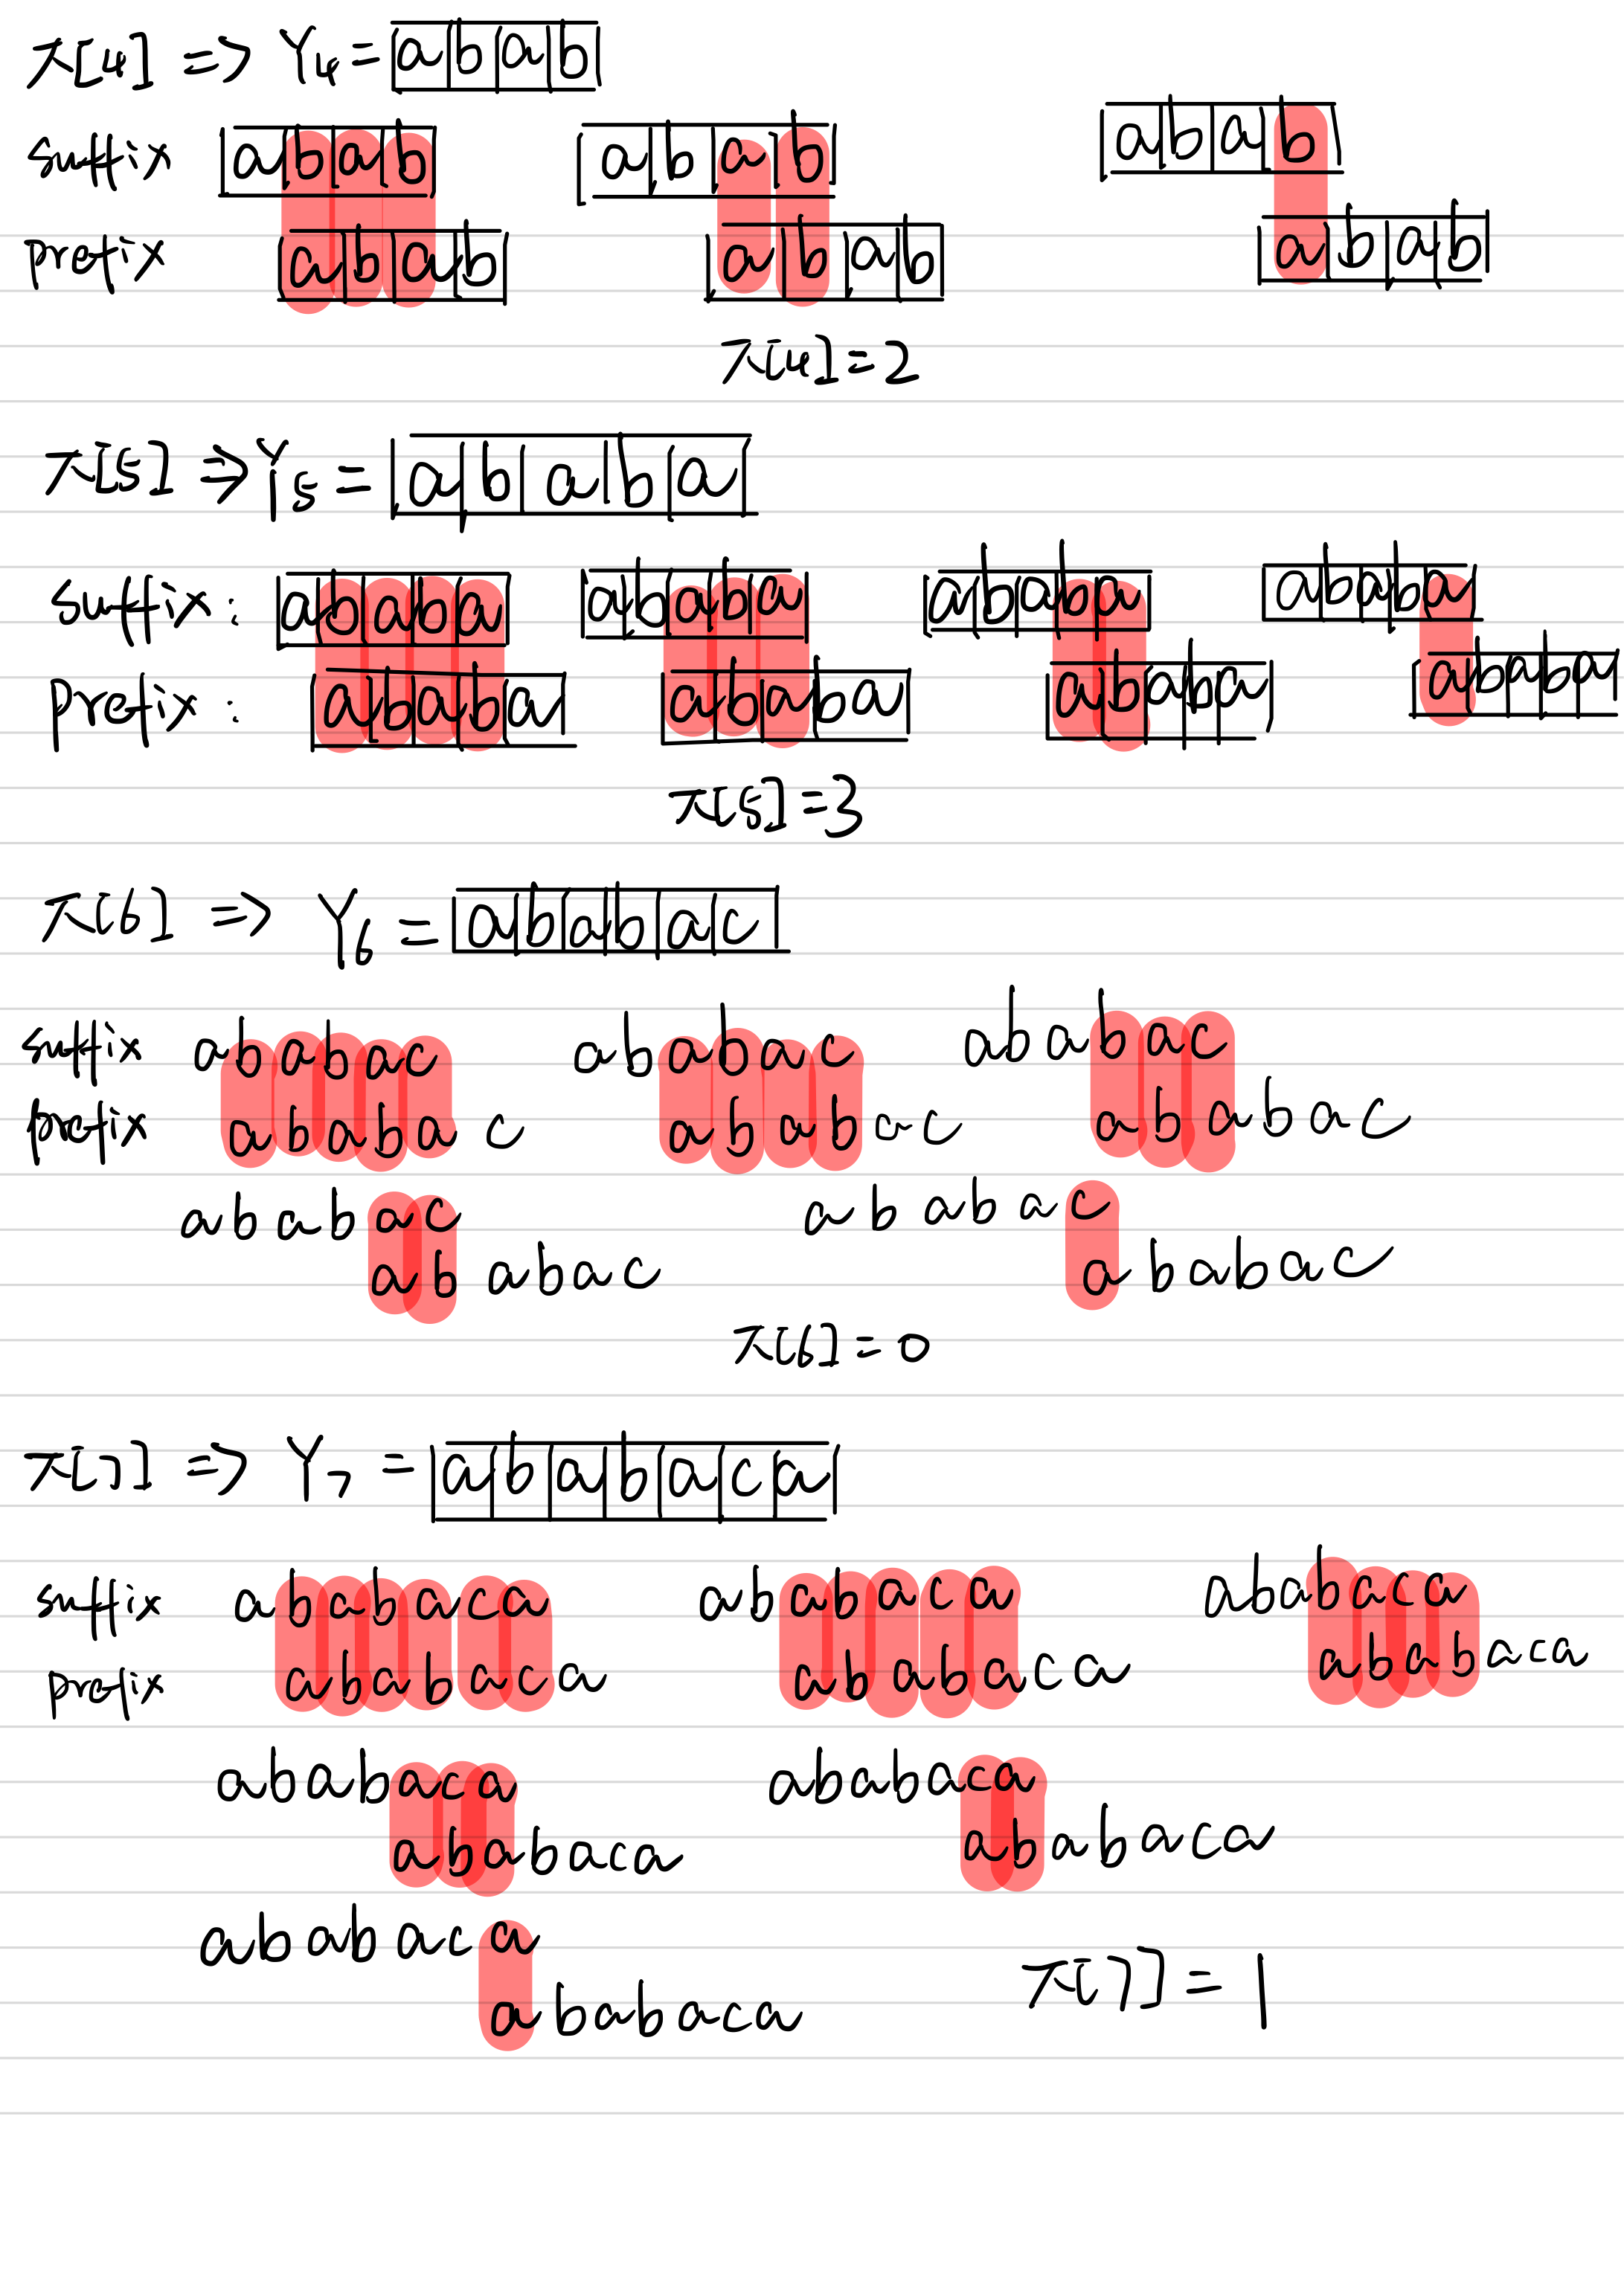 π[4] => Y4 = a b a b
suffix abab abab abab
prefix abab abab abab
π[4]=2
π[5] => Y5 = a b a b a
suffix: ababa ababa ababa ababa
prefix: ababa ababa ababa ababa
π[5]=3
π[6] => Y6 = a b a b a c
suffix ababac ababac ababac
prefix ababac ababac ababac
ababac ababac
ababac ababac
π[6]=0
π[7] => Y7 = a b a b a c a
suffix ababaca ababaca ababaca
prefix ababaca ababaca ababaca
ababaca ababaca
ababaca ababaca
ababaca
ababaca
π[7]=1